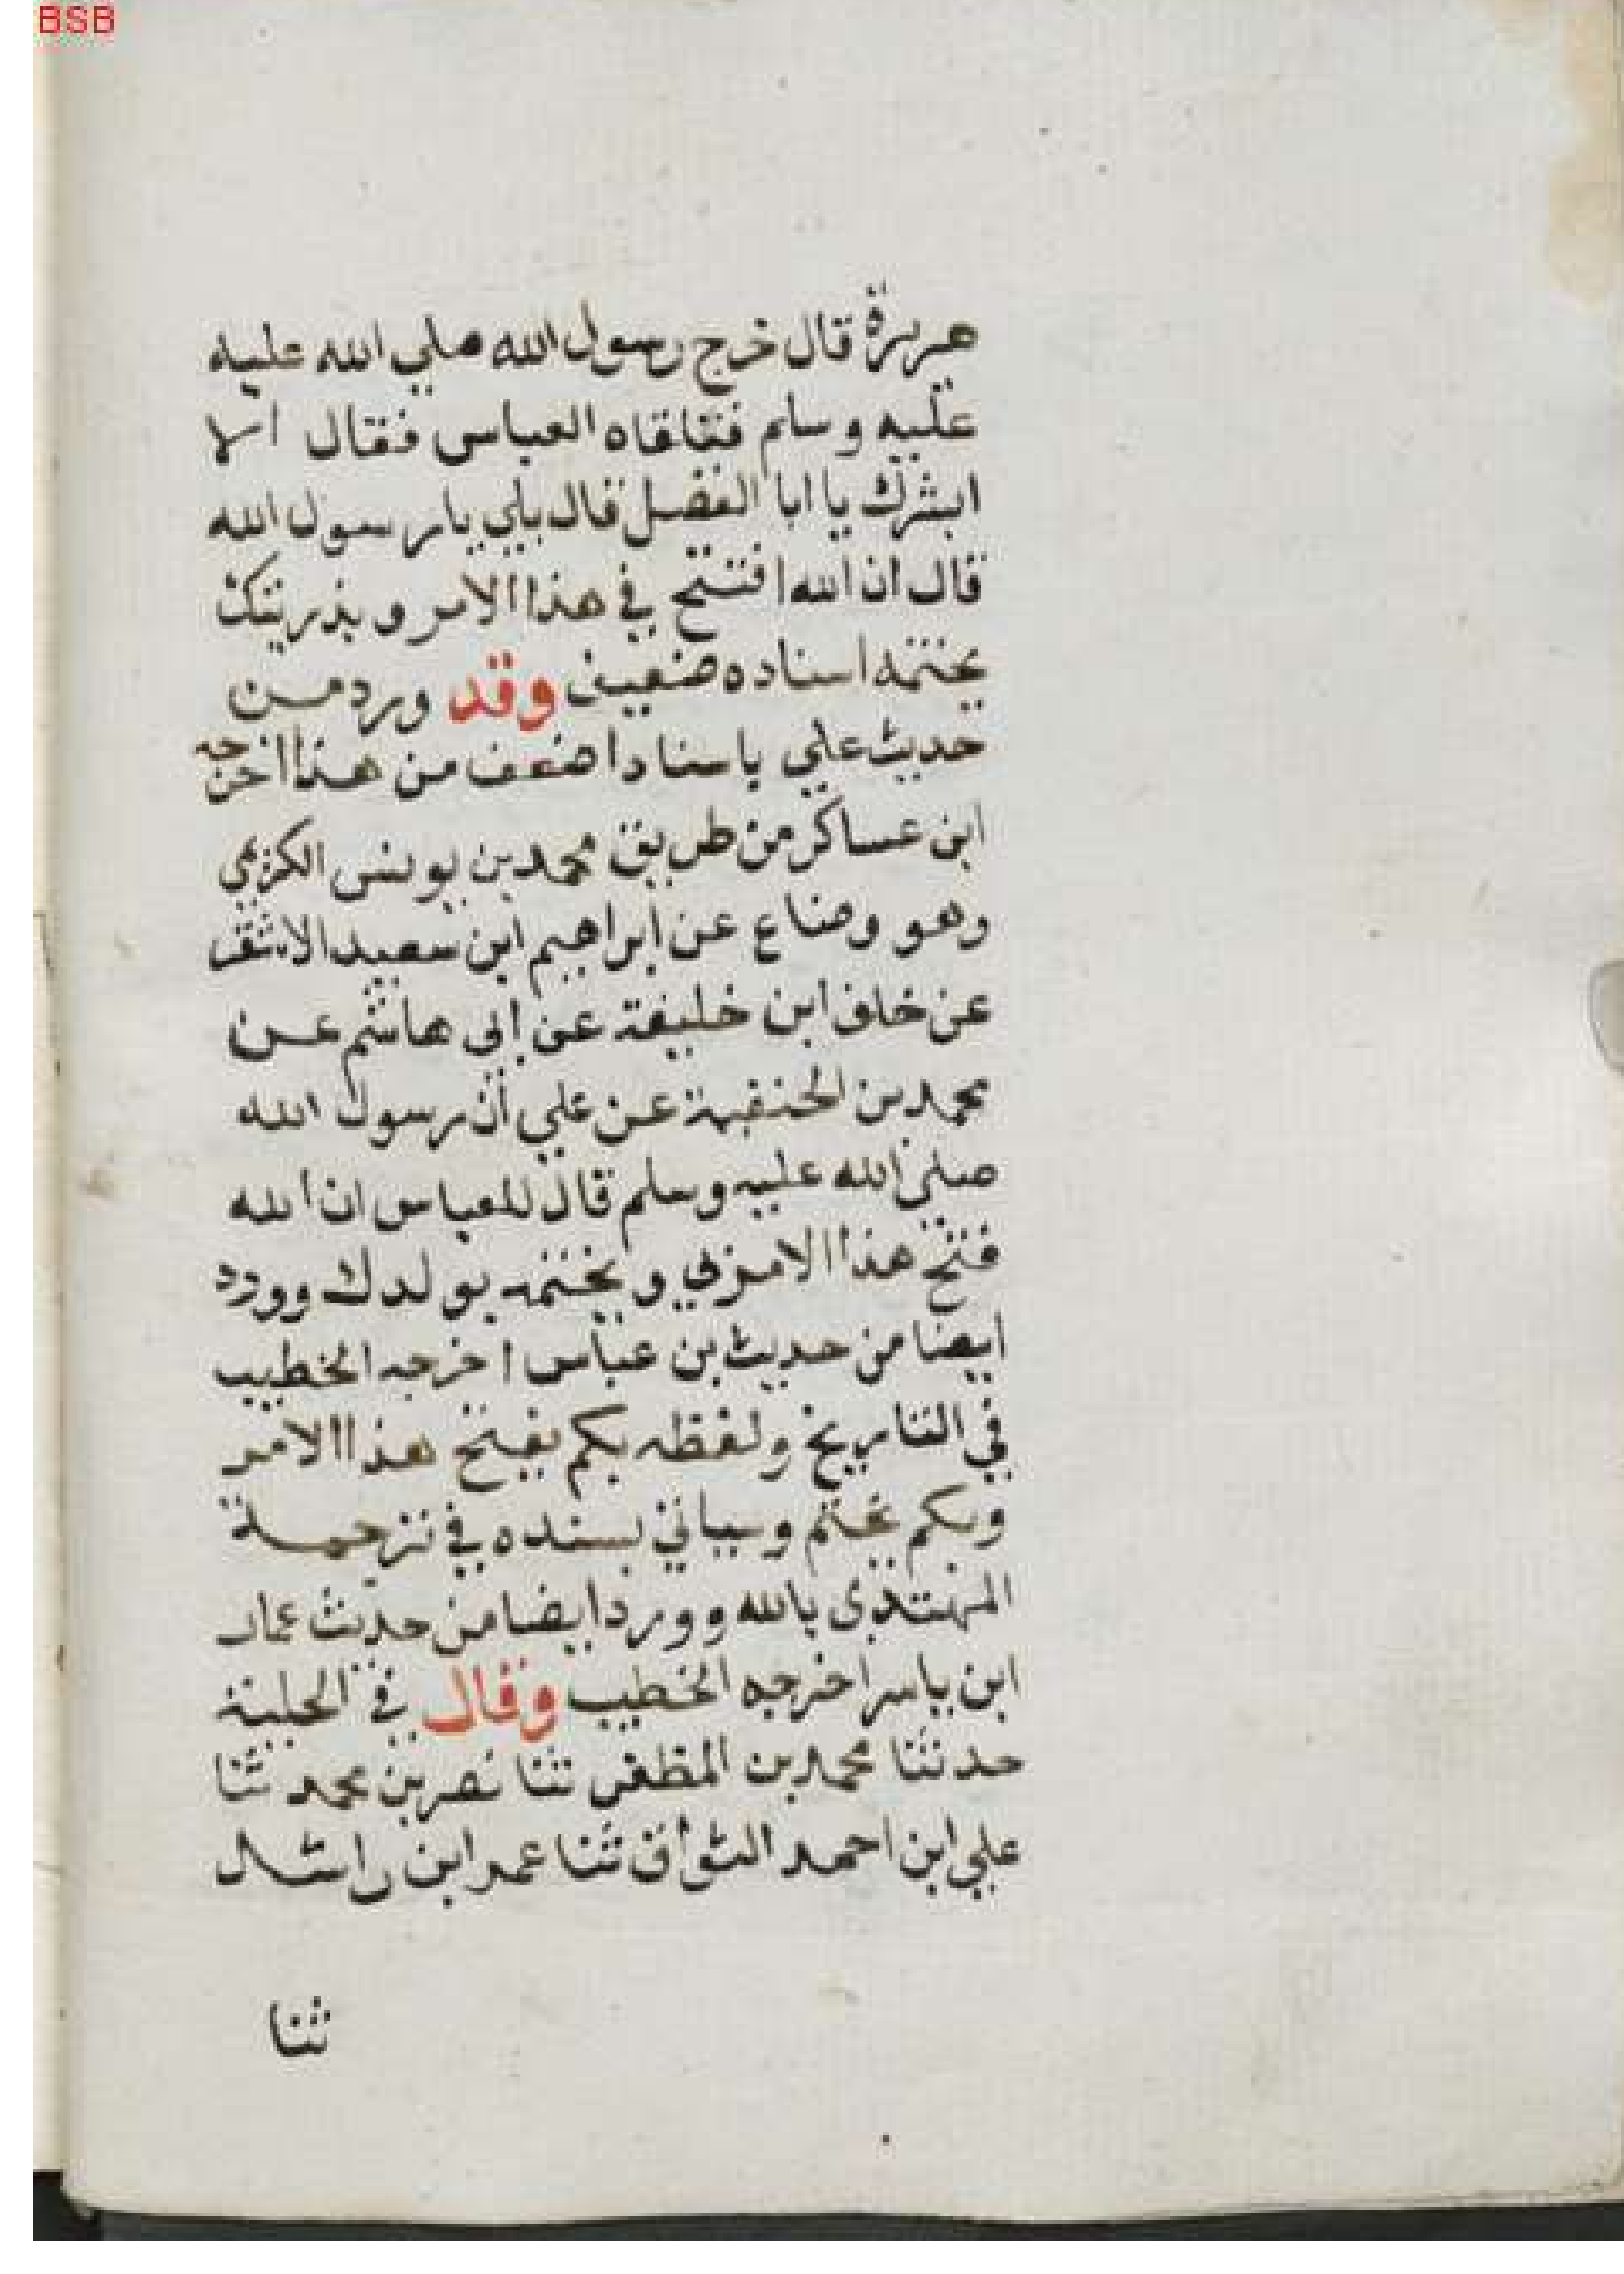 BSB
هريرة قال خرج رسول الله صلي الله عليه
عليه وسلم فتلقاه العباس فقال الا
ابشرك يا ابا الفضل قال بلي يارسول الله
قال ان الله افتتح في هذا الامر وبذريتك
يختتمه اسناده ضعيف وقد ورد من
حديث علي باسناد اضعف من هذا اخرجه
ابن عساكر من طريق محمد بن يونس الكزيمي
وهو وضاع عن ابراهيم ابن سعيد الاشقر
عن خلف ابن خليفة عن ابي هاشم عن
محمد بن الحنفية عن علي أن رسول الله
صلى الله عليه وسلم قال للعباس ان الله
فتح هذا الامر بي ويختمه بولدك وورد
ايضا من حديث بن عباس اخرجه الخطيب
في التاريخ ولفظه بكم يفتح هذا الامر
وبكم يختم وسياتي بسنده في ترجمة
المهتدى بالله وورد ايضا من حديث عمار
ابن ياسر اخرجه الخطيب وقال في الحلية
حدثنا محمد بن المظفر ثنا نصر بن محمد ثنا
علي ابن احمد ثنا عمر ابن راشد
ثنا